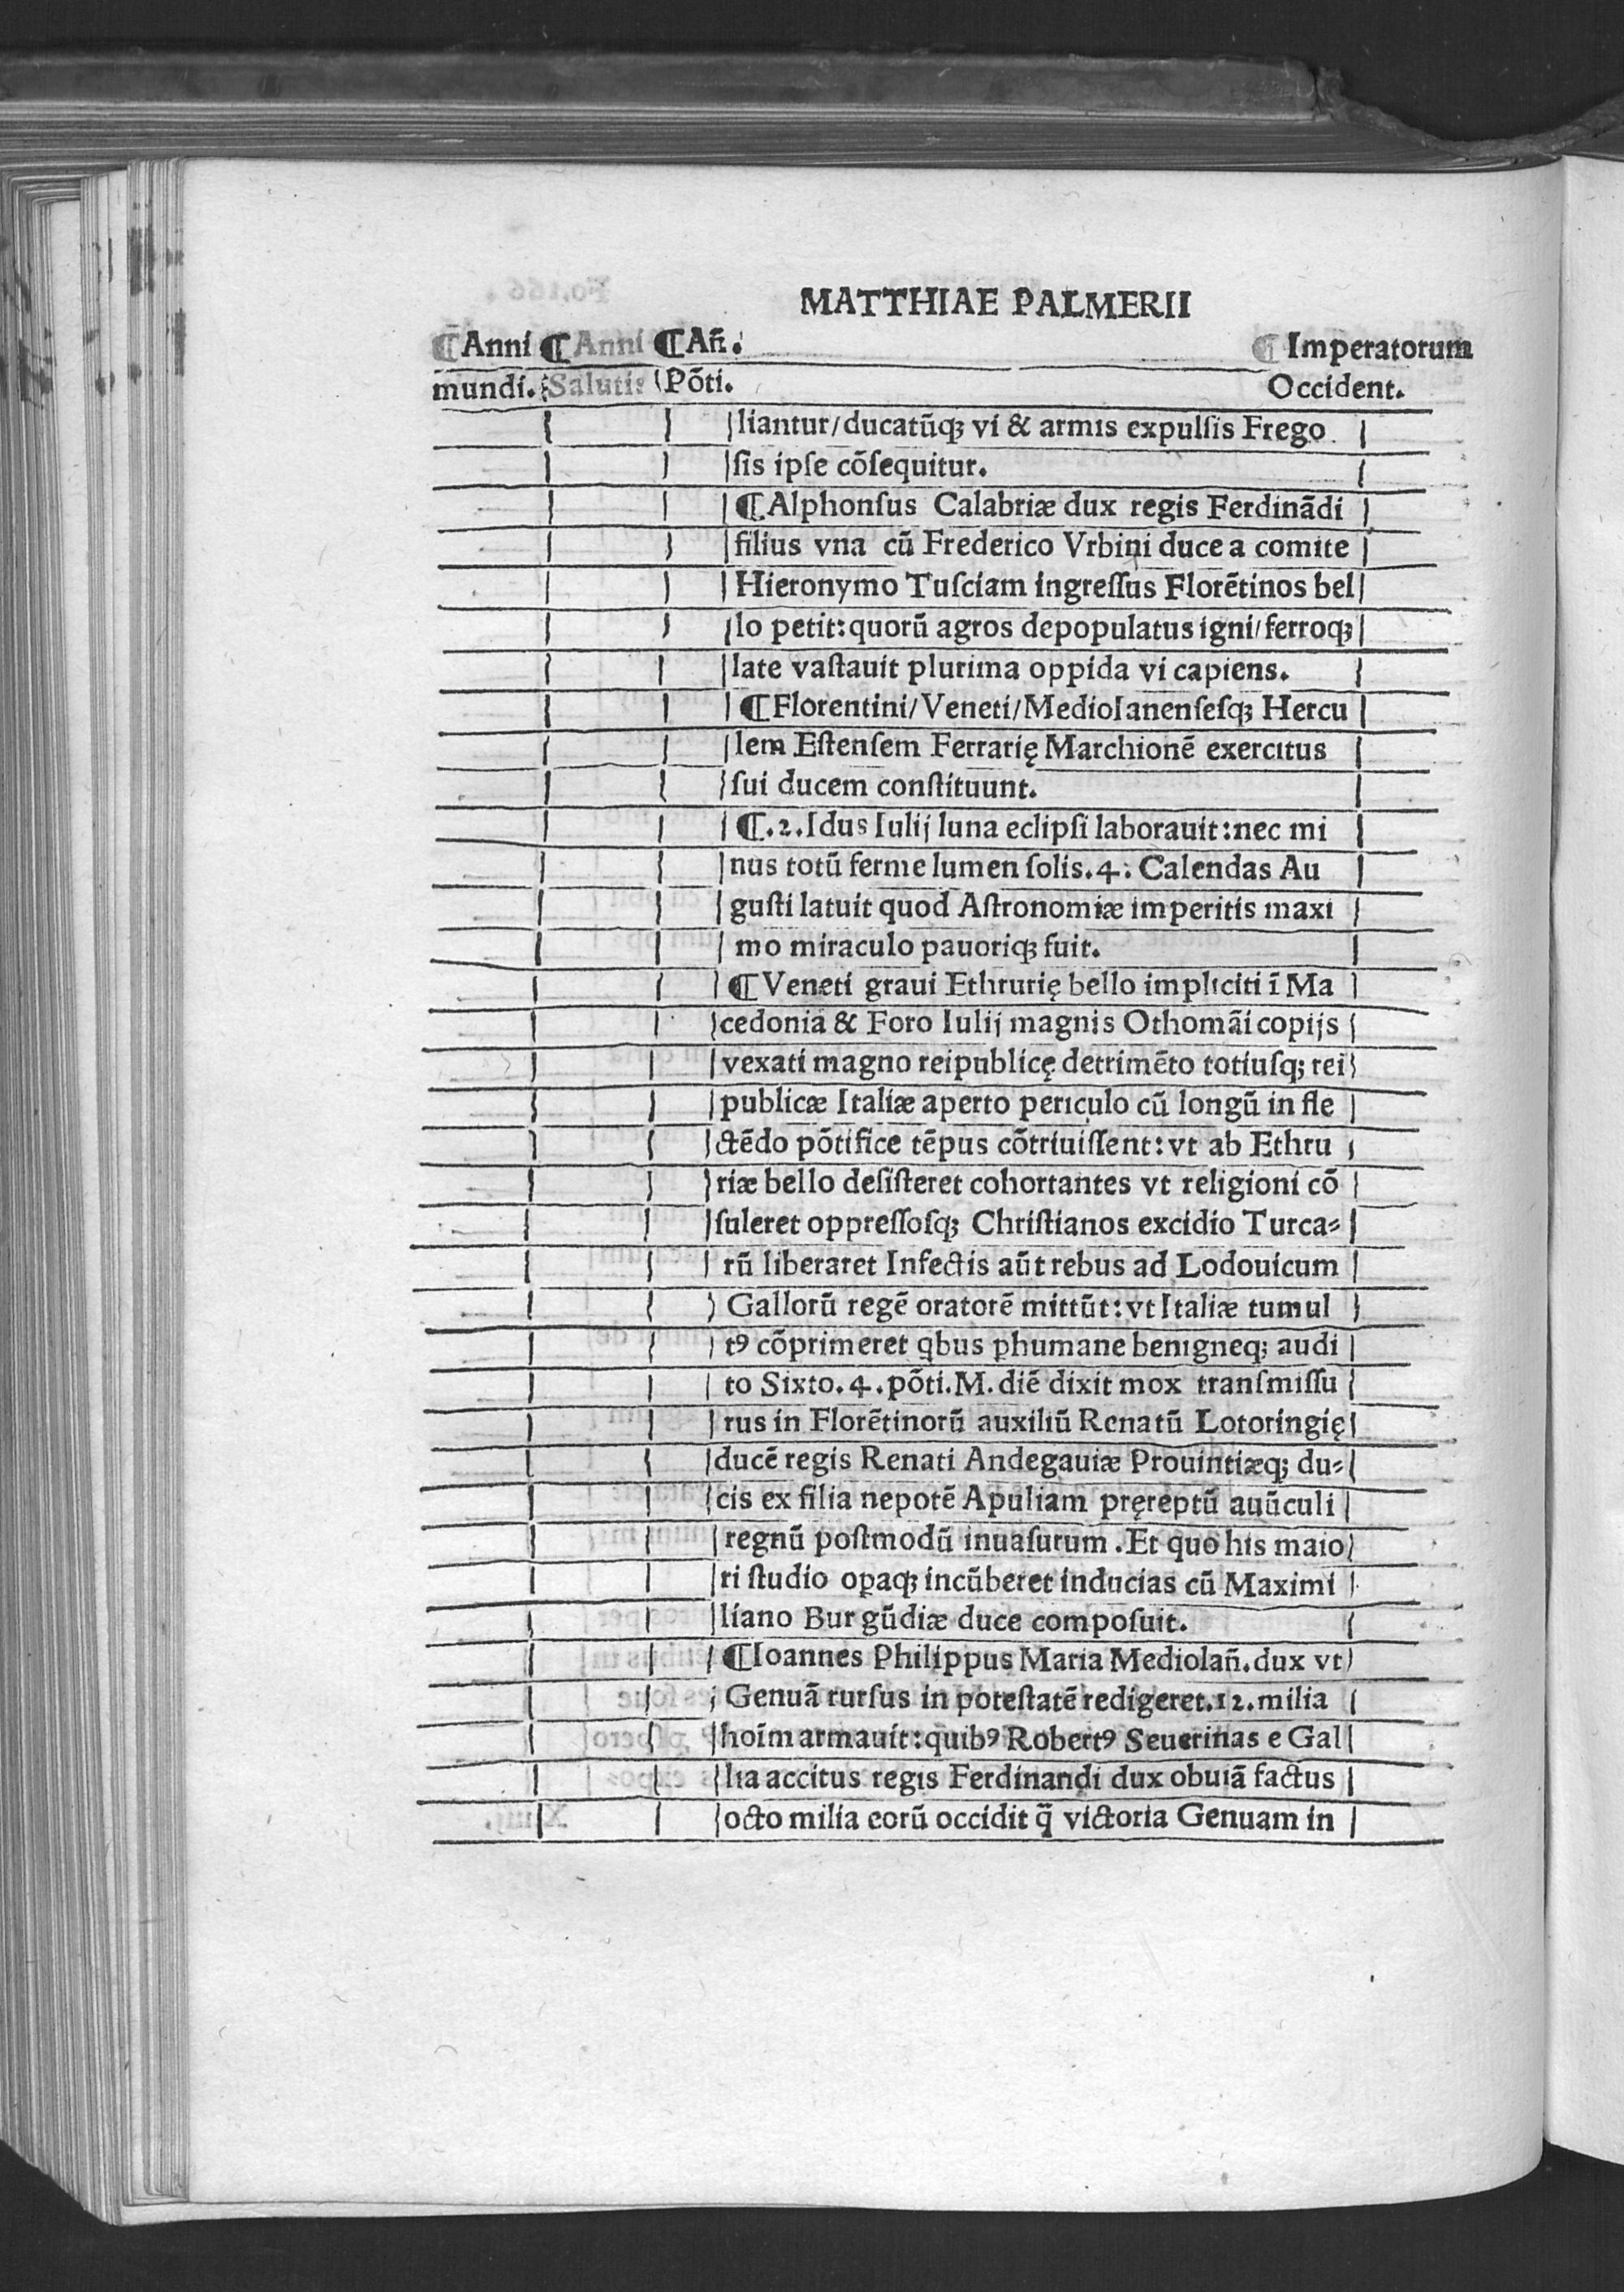 MATTHIAE PALMERII
¶ Anni ¶ Anni ¶ Añ. ¶ Imperatorum
mundi. Salutis Põti. Occident.
liantur/ducatũq; vi & armis expulſis Frego
ſis ipſe cõſequitur.
¶ Alphonſus Calabriæ dux regis Ferdinãdi
filius vna cũ Frederico Vrbini duce a comite
Hieronymo Tuſciam ingreſſus Florẽtinos bel
lo petit: quorũ agros depopulatus igni/ferroq;
late vaſtauit plurima oppida vi capiens.
¶ Florentini/Veneti/Mediolanenſeſq; Hercu
lem Eſtenſem Ferrarię Marchionẽ exercitus
ſui ducem conſtituunt.
¶ .2. Idus Iulij luna eclipſi laborauit: nec mi
nus totũ ferme lumen ſolis .4: Calendas Au
guſti latuit quod Aſtronomiæ imperitis maxi
mo miraculo pauoriq; fuit.
¶ Veneti graui Ethrurię bello impliciti ĩ Ma
cedonia & Foro Iulij magnis Othomãi copijs
vexati magno reipublicę detrimẽto totiuſq; rei
publicæ Italiæ aperto periculo cũ longũ in fle
ctẽdo põtifice tẽpus cõtriuiſſent: vt ab Ethru
riæ bello deſiſteret cohortantes vt religioni cõ
ſuleret oppreſſoſq; Chriſtianos excidio Turca⸗
rũ liberaret Infectis aũt rebus ad Lodouicum
Gallorũ regẽ oratorẽ mittũt: vt Italiæ tumul
tꝰ cõprimeret qͥbus ꝑhumane benigneq; audi
to Sixto .4. põti. M. diẽ dixit mox tranſmiſſu
rus in Florẽtinorũ auxiliũ Renatũ Lotoringię
ducẽ regis Renati Andegauiæ Prouintiæq; du⸗
cis ex filia nepotẽ Apuliam pręreptũ auũculi
regnũ poſtmodũ inuaſurum. Et quo his maio
ri ſtudio oꝑaq; incũberet inducias cũ Maximi
liano Bur gũdiæ duce compoſuit.
¶ Ioannes Philippus Maria Mediolañ. dux vt
Genuã rurſus in poteſtatẽ redigeret .12. milia
hoĩm armauit: quibꝰ Robertꝰ Seuerinas e Gal
lia accitus regis Ferdinandi dux obuiã factus
octo milia eorũ occidit q̃ victoria Genuam in